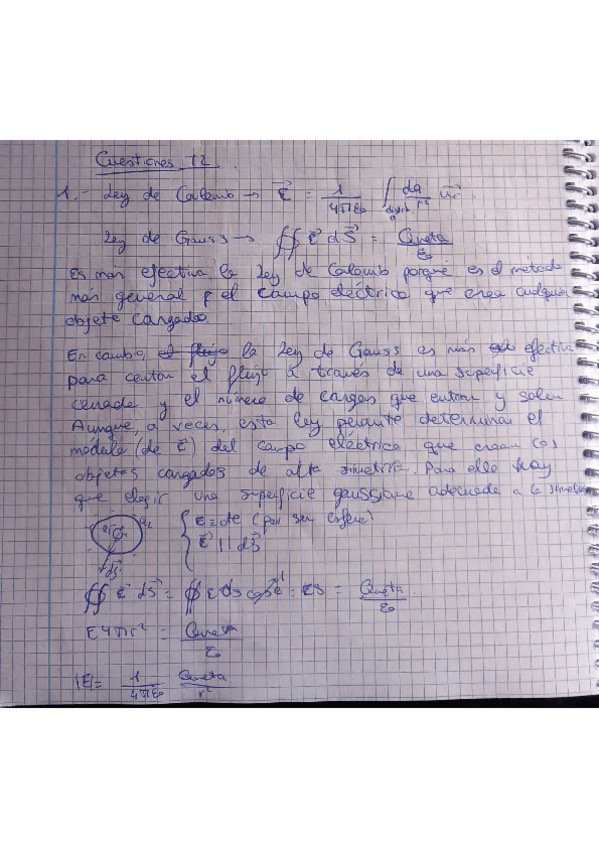 Cuestiones T2
1.- Ley de Coulomb → E = 1/4πε₀ ∫ dq/r² ur
Ley de Gauss → ∯ E dS = Qneta/ε₀
Es más efectiva la Ley de Coulomb porque es el método
más general el campo eléctrico que crea cualquier
objeto cargado
En cambio, el flujo la Ley de Gauss es más efectiva
para contar el flujo a través de una superficie
cerrada y el número de cargas que entran y salen
Aunque, a veces, esta ley permite determinar el
módulo (de E) del campo eléctrico que crean los
objetos cargados de alta simetría. Para ello hay
que elegir una superficie gaussiana adecuada a la simetría
E = cte (por ser esfera)
E || dS
dS
∯ E dS = ∯ E dS cos 1 = ES = Qneta/ε₀
E 4πr² = Qneta/ε₀
|E| = 1/4πε₀ Qneta/r²